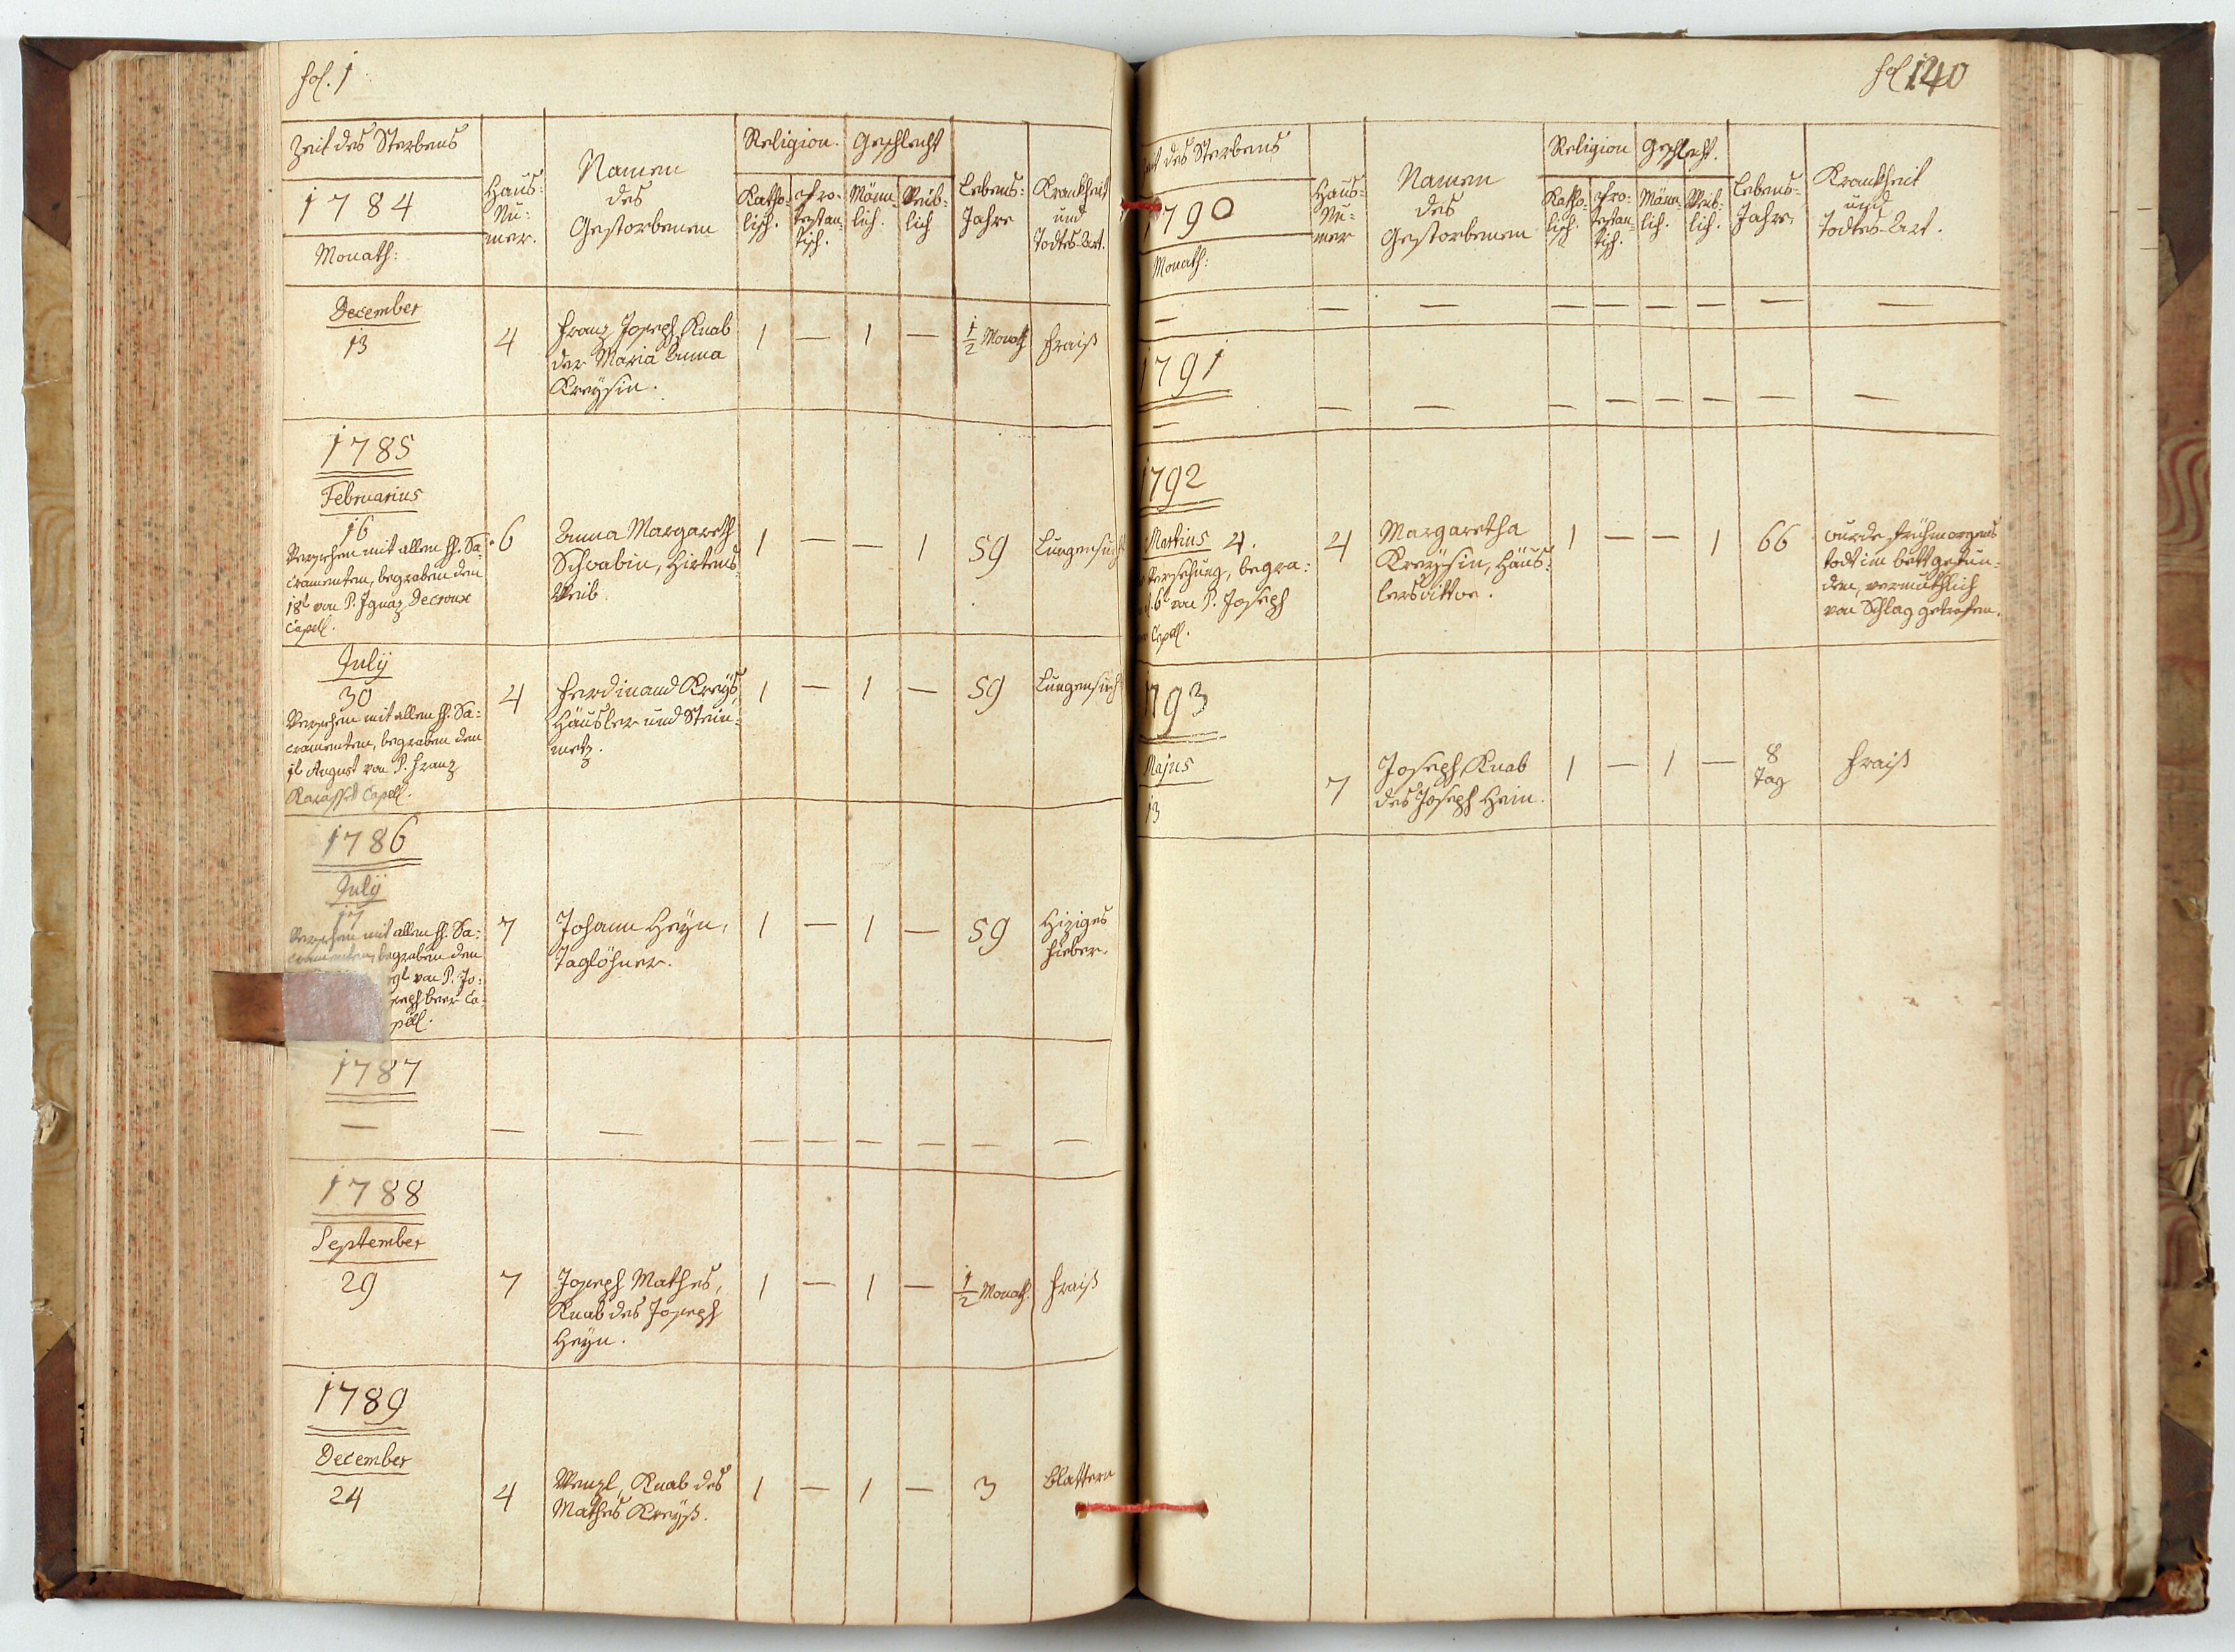 fol. 1
Zeit des Sterbens
1784
Monath:
Haus-
Nu-
mer.
Namen
des
Gestorbenen
Religion.
Katho-
lisch.
Pro-
testan-
tisch.
Geschlecht
Männ-
lich.
Weib-
lich
Lebens-
Jahre
Krankheit
und
Todtes-Art.
December
13
4
Franz Joseph, Knab
der Maria Anna
Kreysin.
1 — 1 —
1/2 Monath
Fraiß
1785
Februarius
16
Versehen mit allen hh. Sa-
cramenten, begraben den
18t von P. Ignaz Decroux
Capell.
6
Anna Margareth
Schwabin, Hirtens-
Weib.
1 — — 1
59
Lungensucht
Julÿ
30
Versehen mit allen hh. Sa-
cramenten, begraben den
1t August von P. Franz
Capell.
4
Ferdinand Kreÿs,
Häusler und Stein-
metz.
1 — 1 —
59
Lungensucht
1786
Julÿ
17
Versehen mit allen hh. Sa-
cramenten, begraben den
19t von P. Jo-
seph beer Ca-
pell.
7
Johann Heÿn,
Taglöhner.
1 — 1 —
59
Hiziges
Fieber.
1787
— — — — — — — — —
1788
September
29
7
Joseph Mathes,
Knab des Joseph
Heÿn.
1 — 1 —
1/2 Monath.
Fraiß
1789
December
24
4
Wenzl, Knab des
Mathes Kreÿß.
1 — 1 —
3
Blattern
fol 140
des Sterbens
1790
Monath:
Haus-
Nu-
mer
Namen
des
Gestorbenen
Religion
Katho-
lisch.
Pro-
testan-
tisch.
Geschlecht.
Männ-
lich.
Weib-
lich.
Lebens-
Jahre
Krankheit
und
Todtes-Art.
— — — — — — — — —
1791
— — — — — — — — —
1792
Martius 4.
Versehung, begra-
6t von P. Joseph
Capell.
4
Margaretha
Kreÿsin, Häus-
lerswittwe.
1 — — 1
66
wurde frühmorgens
todt im bett gefun-
den, vermuthlich
von Schlag getrofen.
1793
Majus
13
7
Joseph, Knab
des Joseph Hein.
1 — 1 —
8
Tag
Fraiß